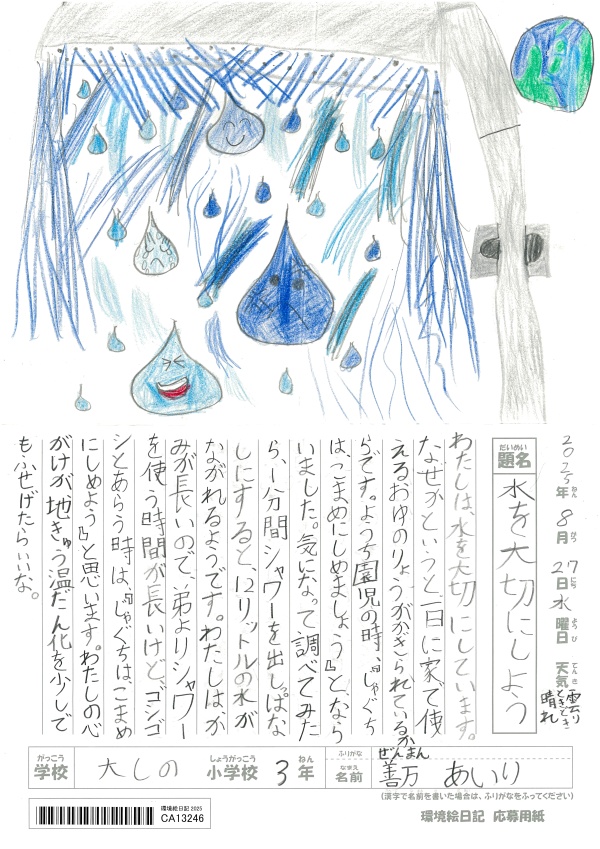 2025年ねん 8月がつ 27日にち 水曜日ようび 天気てんき 曇りときどき晴れ
だいめい
題名
水を大切にしよう
わたしは、水を大切にしています。
なぜかというと、一日に家で使
えるおゆのりょうがかぎられているか
らです。ようち園児の時、『じゃぐち
は、こまめにしめましょう』となら
いました。気になって調べてみた
ら、1分間シャワーを出しっぱな
しにすると、12リットルの水が
ながれるようです。わたしはか
みが長いので、弟よりシャワー
を使う時間が長いけど、ゴシゴ
シとあらう時は、『じゃぐちは、こまめ
にしめよう』と思います。わたしの心
がけが地きゅう温だん化を少しで
もふせげたらいいな。
がっこう
学校
大しの
しょうがっこう
小学校
3
ねん
年
ふりがな
ぜんまん
なまえ
名前
善万 あいり
(漢字で名前を書いた場合は、ふりがなをふってください)
環境絵日記 2025
CA13246
環境絵日記 応募用紙